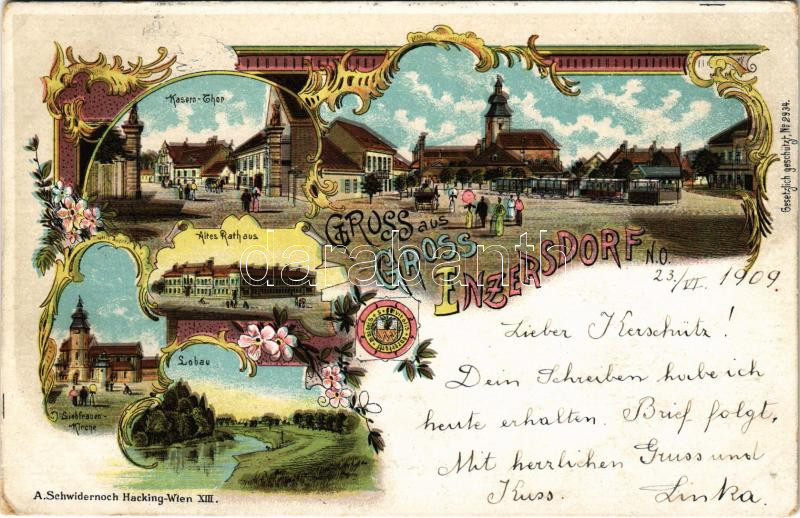 Kasern-Thor
Altes Rathaus
Liebfrauen-
-Kirche
Lobau
GRUSS aus
GROSS
ENZERSDORF N.Ö.
Gesetzlich geschützt, No 2934.
darabanth
23./VI. 1909
Lieber Kerschütz!
Dein Schreiben habe ich
heute erhalten. Brief folgt.
Mit herzlichen Gruss und
Kuss. Linka.
A. Schwidernoch Hacking-Wien XIII.